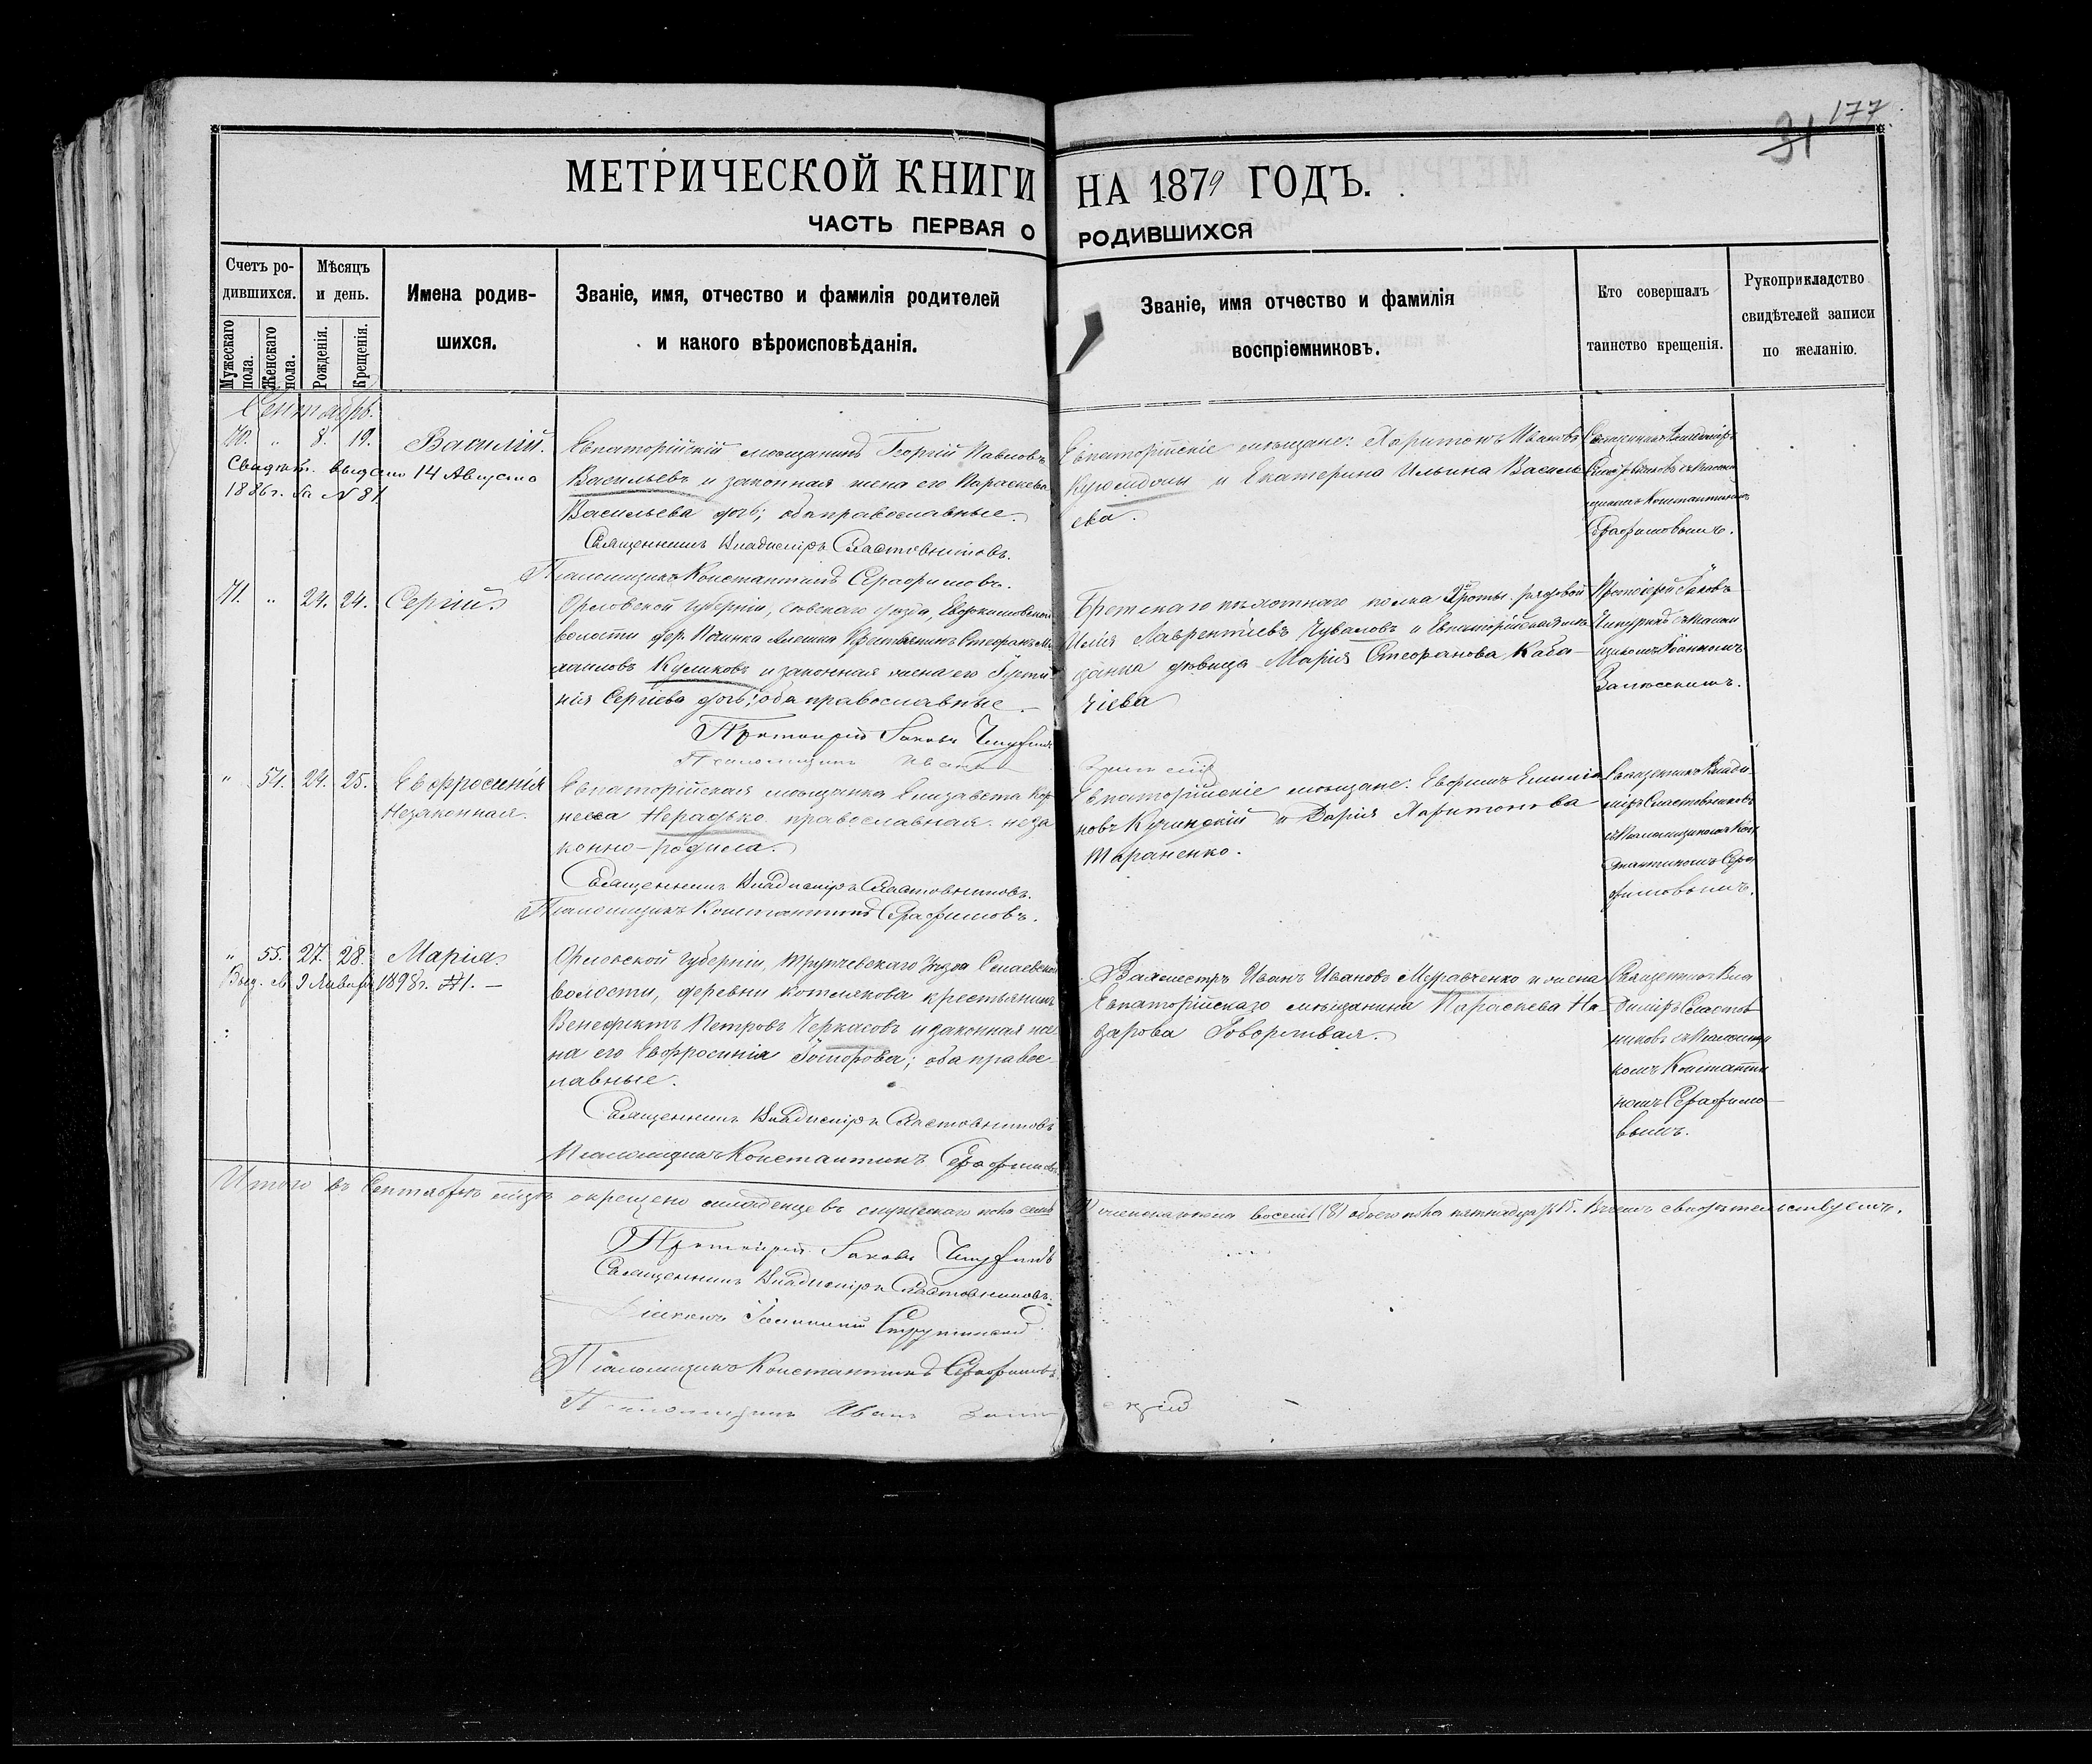 177
31
МЕТРИЧЕСКОЙ КНИГИ НА 1879 ГОДЪ.
ЧАСТЬ ПЕРВАЯ О РОДИВШИХСЯ
Счетъ ро-
дившихся.
Мужескаго
пола.
Женскаго
пола.
Мѣсяцъ
и день.
Рожденія.
Крещенія.
Имена родив-
шихся.
Званіе, имя, отчество и фамилія родителей
и какого вѣроисповѣданія.
Званіе, имя отчество и фамилія
воспріемниковъ.
Кто совершалъ
таинство крещенія.
Рукоприкладство
свидѣтелей записи
по желанію.
Сентябрь.
70. " 8. 19. Василій.
Свидѣт. выдано 14 Августа
1886 г. за № 81
Евпаторійскій мѣщанинъ Георгій Павловъ
Васильевъ и законная жена его Параскева
Васильева дочь; оба православные.
Священникъ Владиміръ Сластовниковъ.
Псаломщикъ Константинъ Серафимовъ.
Евпаторійскіе мѣщане: Харитонъ Ивановъ
и Екатерина Ильина Василь
ева.
Священникъ Владиміръ
Сластовниковъ съ Псалом
щикомъ Константиномъ
Серафимовымъ.
71. " 24. 24. Сергій
Орловской губерніи, Сѣвскаго уѣзда,
волости дер. Починка Алешка Крестьянинъ Стефанъ Ми
хаиловъ Куликовъ и законная жена его Іусти
нія Сергіева дочь; оба православные.
Протоіерей Іаковъ Чепуринъ
Псаломщикъ Иванъ
Брестскаго пѣхотнаго полка роты рядовой
Илія Лаврентіевъ Чуваловъ и Евпаторійская мѣ
щанка дѣвица Марія Стефанова Каба
чіева
Протоіерей Іаковъ
Чепуринъ съ Псалом
щикомъ Іоанномъ
Залѣсскимъ.
" 54. 24. 25. Евфросинія
Незаконная.
Евпаторійская мѣщанка Елизавета Кор
неева Нерадько православная. неза
конно-родила.
Священникъ Владиміръ Сластовниковъ.
Псаломщикъ Константинъ Серафимовъ.
Евпаторійскіе мѣщане: Ефимъ Емилія
новъ Кучинскій и Дарія Харитонова
Тараненко.
Священникъ Влади
міръ Сластовниковъ
съ Псаломщикомъ Кон
стантиномъ Сера
фимовымъ.
" 55. 27. 28. Марія.
Выд. св. 9 Января 1898 г. №1. —
Орловской губерніи, Трупчевскаго Уѣзда
волости, деревни Котлякова крестьянинъ
Венефиктъ Петровъ Черкасовъ и законная же
на его Евфросинія Ѳеодорова; оба правос
лавные.
Священникъ Владиміръ Сластовниковъ
Псаломщикъ Константинъ Серафимовъ
Вахмистръ Иванъ Ивановъ Муравченко и жена
Евпаторійскаго мѣщанина Параскева На
зарова Говорливая.
Священникъ Вла
диміръ Сластов
никовъ съ Псаломщи
комъ Константи
номъ Серафимо
вымъ.
Итого въ Сентябрѣ мѣсяцѣ окрещено младенцевъ мужескаго пола семь женскаго пола восемь (8) обоего пола пятнадцать 15. Въ чемъ свидѣтельствуемъ.
Протоіерей Іаковъ Чепуринъ
Священникъ Владиміръ Сластовниковъ.
Псаломщикъ Константинъ Серафимовъ.
Псаломщикъ Иванъ